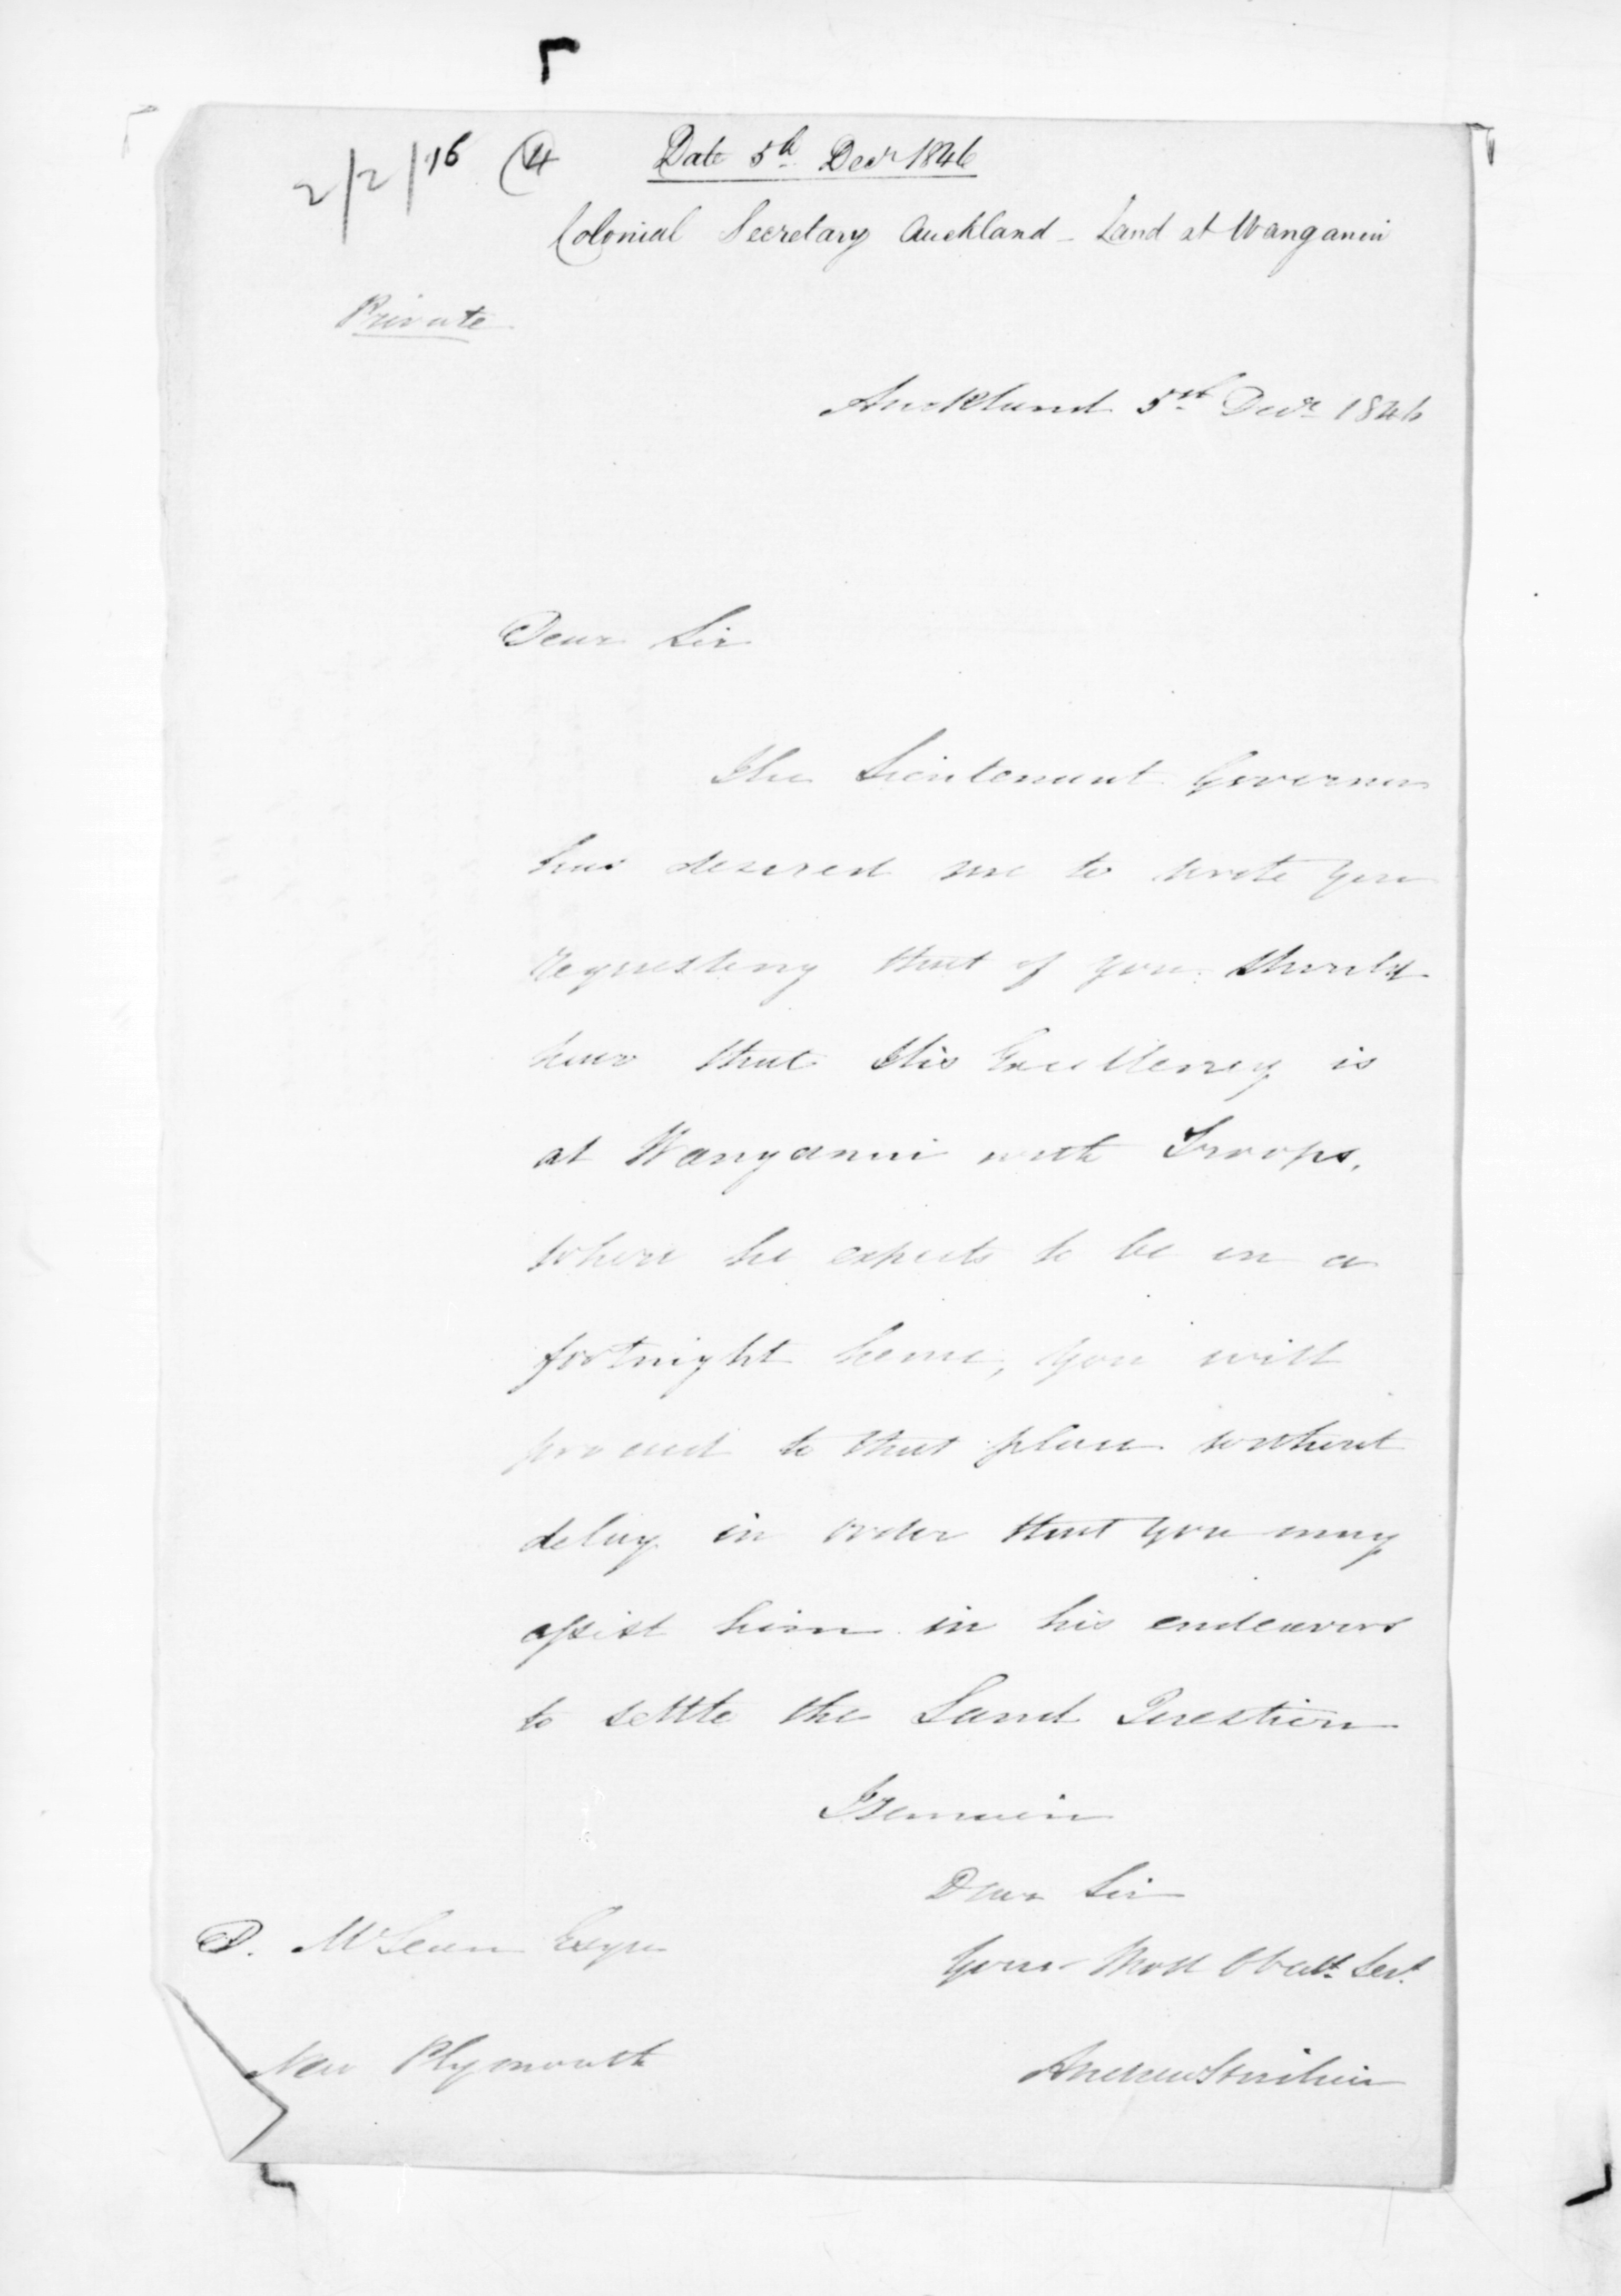 2/2/16 (4 Date 5th Decr 1846
Colonial Secretary Auckland - Land at Wanganui
Private
Auckland 5th Decr 1846
Dear Sir
The Lieutenant Governor
has desired me to write you
requesting that if you should
hear that His Excellency is
at Wanganui with Troops,
where he expects to be in a
fortnight hence, you will
proceed to that place without
delay in order that you may
assist him in his endeavors
to settle the Land Question
I remain
Dear Sir
Your Most Obedt. Sert.
D. McLean Esqre
New Plymouth
Andrew Sinclair